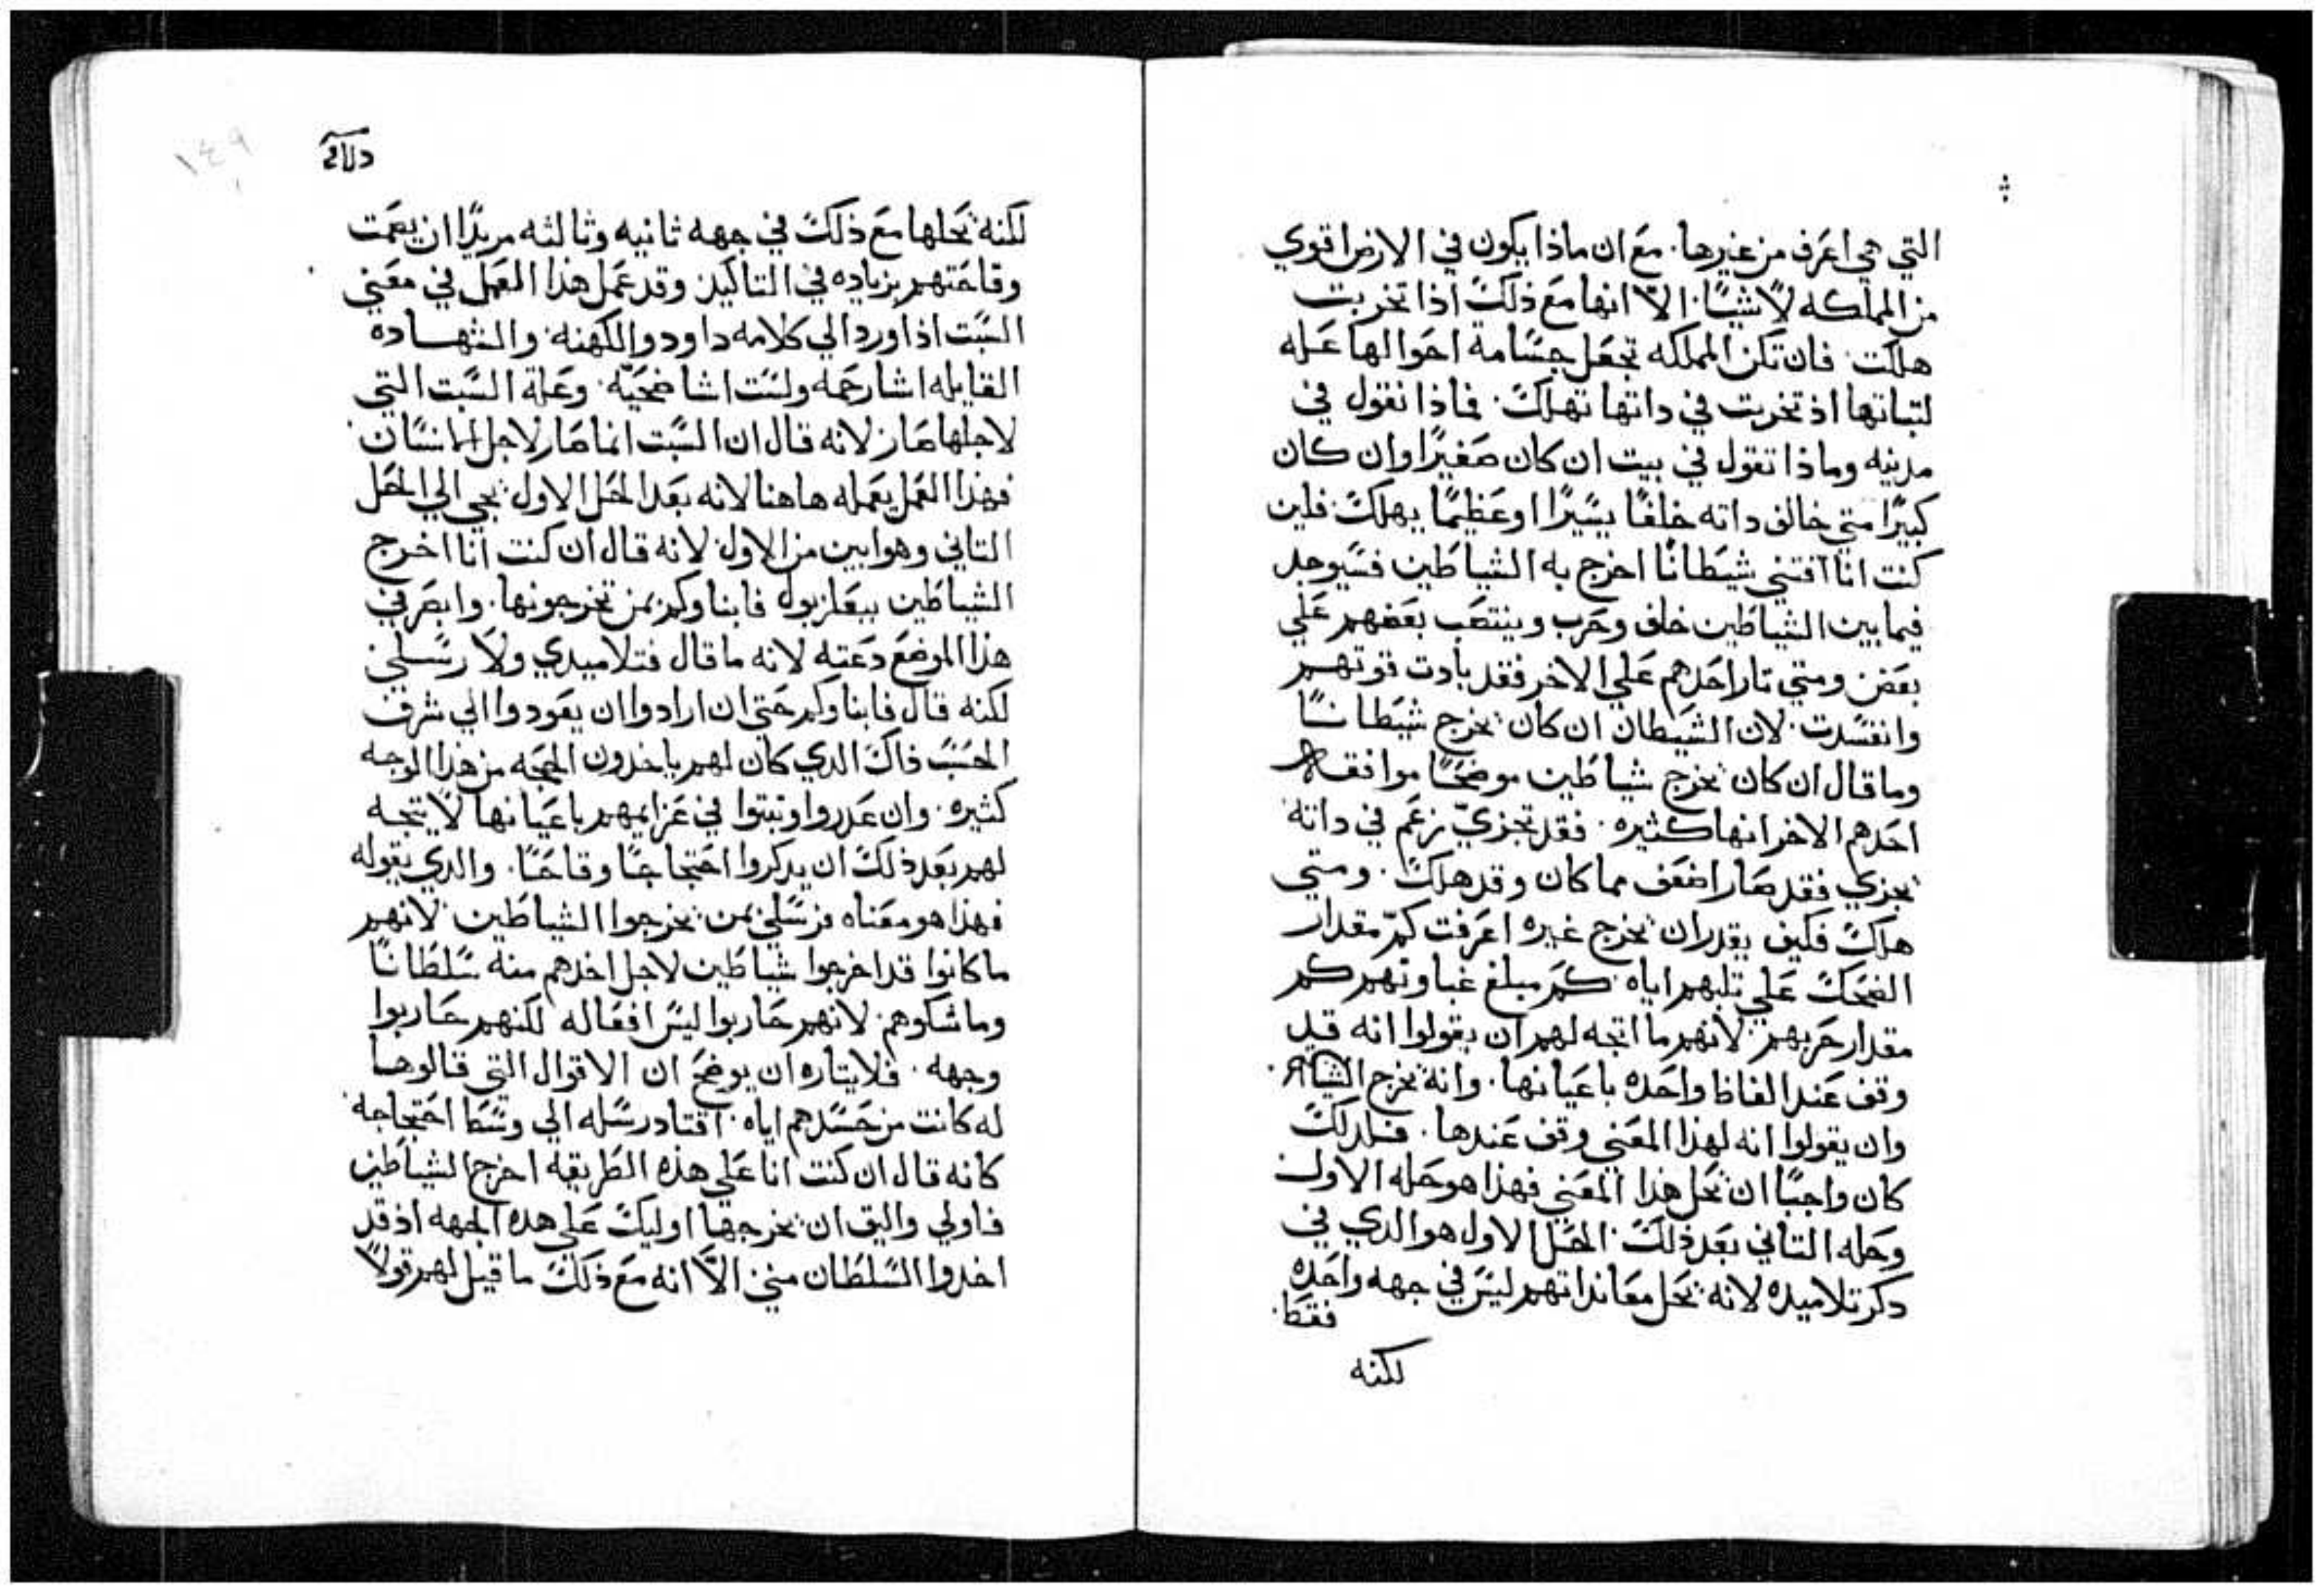 التي هي اعرف من غيرها. مع ان ماذا يكون في الارض اقوي
من المملكه لا شيًا. الاّ انها مع ذلك اذا تخربت
هلكت. فان تكن المملكه تجعل جسامة احوالها عله
لتباتها اذ تخربت في داتها تهلك. فماذا نقول في
مدينه وماذا تقول في بيت ان كان صغيرًا وان كان
كبيرًا متي خالف داته خلفًا يسيرًا او عظيمًا يهلك. فلين
كنت انا اقتني شيطانًا اخرج به الشياطين فسيوجد
فيما بين الشياطين خلف وحرب وينتصب بعضهم علي
بعض ومتي تار احدهم علي الاخر فقد بادت قوتهم
وانفسدت. لان الشيطان ان كان يخرج شيطانًا
وما قال ان كان يخرج شياطين موضحًا موافقة
احدهم الاخر انها كثيره. فقد تجزيّ زعم في داته
تجزي فقد صار اضعف مما كان وقد هلك. ومتي
هلك فكيف يقدر ان يخرج غيره اعرفت كمّ مقدار
الضحك علي تلبهم اياه كم مبلغ غباوتهم كم
مقدار حربهم. لانهم ما اتجه لهم ان يقولوا انه قد
وقف عند الفاظ واحده باعيانها. وانه يخرج الشياطين.
وان يقولوا انه لهذا المعني وقف عندها. فلدلك
كان واجبًا ان يحل هذا المعني فهذا هو حله الاول
وحله التاني بعد ذلك الحل الاول هو الدي في
دكر تلاميده لانه يحل معانداتهم ليس في جهه واحده
فقط.
لكنه
١٤٩
لكنه يحلها مع ذلك في جهه ثانيه وثالثه مريدًا ان يصمت
وقاحتهم بزياده في التاكيد وقد عمل هذا العمل في معني
السبت اذا ورد الي كلامه داود والكهنه. والشهاده
القايله اشا رحمه ولست اشا ضحيّه. وعلة السبت التي
لاجلها صار لانه قال ان السبت انما صار لاجل الانسان.
فهذا العمل يعمله هاهنا لانه بعد الحل الاول يجي الي الحل
التاني وهو ابين من الاول. لانه قال ان كنت انا اخرج
الشياطين ببعلزبول فابناوكم بمن تخرجونها. وابصر في
هذا الموضع دعته لانه ما قال فتلاميدي ولا رسلي
لكنه قال فابناوكم حتي ان ارادوا ان يعودوا الي شرف
الحسب ذاك الدي كان لهم ياخدون الحجه من هذا الوجه
كثيره. وان غدروا وتبتوا في عزايمهم باعيانها لا يتجه
لهم بعد ذلك ان يدكروا احتجاجًا وقاحًا. والدي يقوله
فهذا هو معناه فرسلي بمن يخرجوا الشياطين. لانهم
ما كانوا قد اخرجوا شياطين لاجل اخدهم منه سلطانًا
وما شكوهم. لانهم حاربوا ليس افعاله لكنهم حاربوا
وجهه. فلايتاره ان يوضح ان الاقوال التي قالوها
له كانت من حسدهم اياه. اقتاد رسله الي وسط احتجاجه.
كانه قال ان كنت انا علي هذه الطريقه اخرج الشياطين
فاولي واليق ان يخرجها اوليك علي هده الجهه اذ قد
اخدوا السلطان مني. الاّ انه مع ذلك ما قيل لهم قولاً